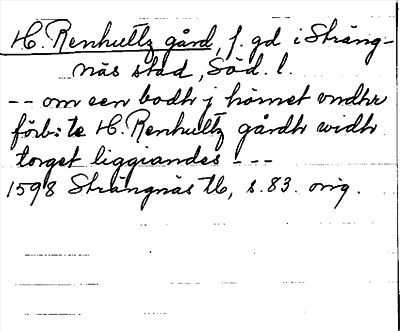 H. Renhultz gård, f. gd i Sträng-
näs stad, Söd. l.
-- om een bodh j hörnet vndhr
förb:te H. Renhultz gårdh widh
torget liggiandes ---
1598 Strängnäs tb, s. 83. orig.